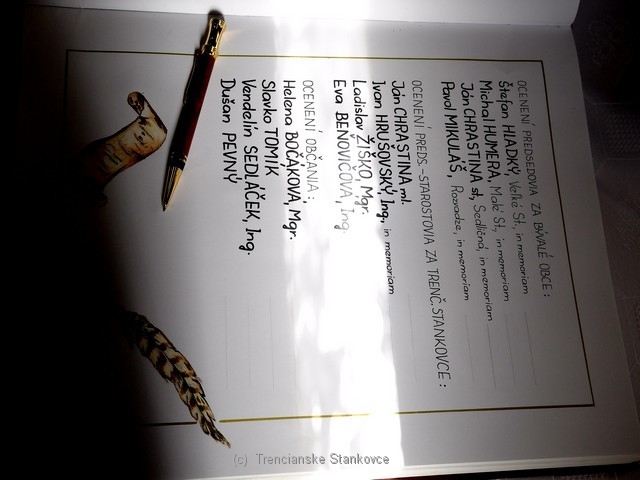 OCENENÍ PREDSEDOVIA ZA BÝVALÉ OBCE:
Štefan HLADKÝ, Veľké St., in memoriam
Michal HUMERA, Malé St., in memoriam
Ján CHRASTINA st., Sedličná, in memoriam
Pavol MIKULÁŠ, Rozvadze, in memoriam
OCENENÍ PREDS.-STAROSTOVIA ZA TRENČ. STANKOVCE:
Ján CHRASTINA ml.
Ivan HRUŠOVSKÝ, Ing., in memoriam
Ladislav ŽIŠKO, Mgr.
Eva BENOVIČOVÁ, Ing.
OCENENÍ OBČANIA:
Helena BOČÁKOVÁ, Mgr.
Slavko TOMIK
Vendelín SEDLÁČEK, Ing.
Dušan PEVNÝ
(c) Trencianske Stankovce